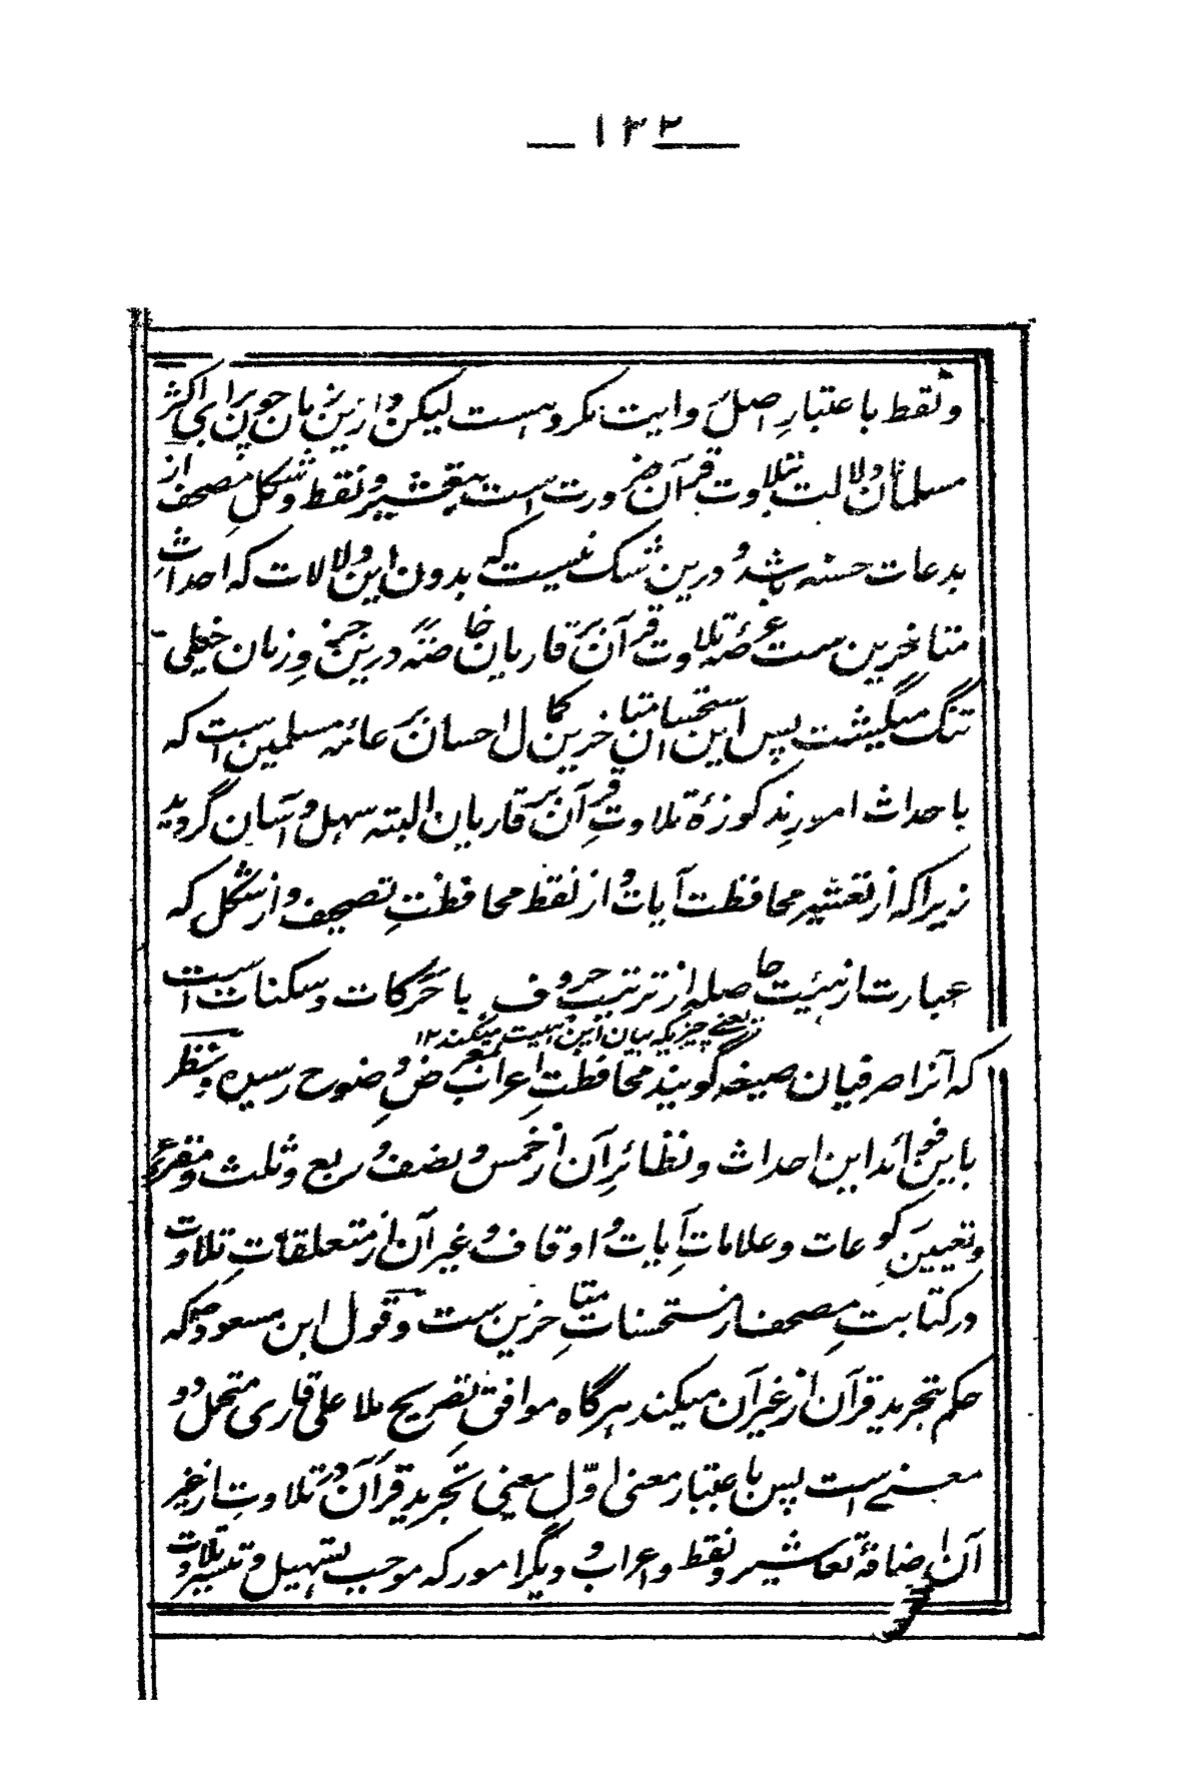 ۱۳۲
و نقط باعتبارِ اصل روایت مکروه است لیکن درین زمان چون برای اکثر
مسلمانان دلالت بتلاوت قرآن ضرورت است پس تعشیر و نقط و شکلِ مصحف از
بدعات حسنه باشد و درین شک نیست که بدون این دلالات که احداثِ
متاخرین ست عرصهٔ تلاوت قرآن بر قاریان خاصةً درین جزو زمان خیلی
تنگ میگشت پس این استحسانِ متاخرین کمال احسان بر عامهٔ مسلمین است که
با حداث امور مذکوره تلاوتِ قرآن بر قاریان البته سهل و آسان گردید
زیرا که از تعشیر محافظت آیات و از نقط محافظتِ تصحیف و از شکل که
عبارت از هیئت حاصله از ترتیب حروف با حرکات و سکنات است
یعنے چیزیکه بیان این هیئت میکند ۱۲
که آنرا صرفیان صیغه گویند محافظتِ اعراب بمعرضِ وضوح رسیده و نظر
باین فوائد این احداث و نظائرِ آن از خمس و نصف و ربع و ثلث و مقرع
و تعیین رکوعات و علاماتِ آیات و اوقاف و غیر آن از متعلقاتِ تلاوت
در کتابتِ مصحف از مستحسنات متاخرین ست و قول ابن مسعود رض که
حکم تجرید قرآن از غیر آن میکند هرگاه موافقِ تصریح ملا علی قاری محتمل دو
معنے است پس باعتبار معنی اوّل یعنی تجریدِ قرآن در تلاوت از غیر
آن اضافهٔ تعاشیر و نقط و اعراب و دیگر امور که موجب تسهیل و تیسیر تلاوت